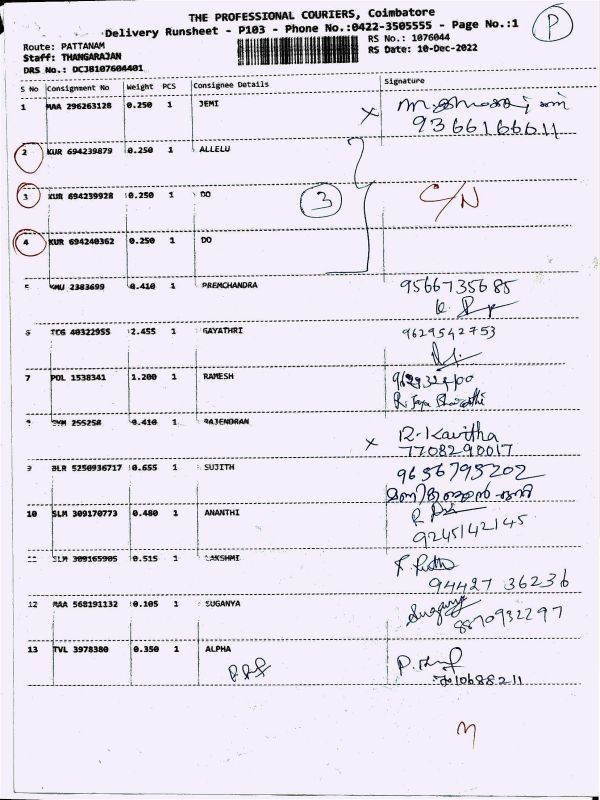 THE PROFESSIONAL COURIERS, Coimbatore
Delivery Runsheet - P103 - Phone No.:0422-3505555 - Page No.:1
P
Route: PATTANAM
RS No.: 1076044
Staff: THANGARAJAN
RS Date: 10-Dec-2022
DRS No.: DCJB107604401
S No Consignment No Weight PCS Consignee Details Signature
1 MAA 296263128 0.250 1 JEMI
9366166611
2 KUR 694239879 0.250 1 ALLELU
3 KUR 694239928 0.250 1 DO 3 C/N
4 KUR 694240362 0.250 1 DO
5 KMU 2383699 0.410 1 PREMCHANDRA 9566735685
6 TCG 40322955 2.455 1 GAYATHRI 9629542753
7 POL 1538341 1.200 1 RAMESH
8 255258 0.410 1 RAJENDRAN R-Kavitha
7708290017
9 BLR 5250936717 0.655 1 SUJITH 9656795202
10 SLM 309170773 0.480 1 ANANTHI
9245142145
11 SLM 309165905 0.515 1 LAKSHMI
94427 36236
12 MAA 568191132 0.105 1 SUGANYA Suganya
8870932297
13 TVL 3978380 0.350 1 ALPHA